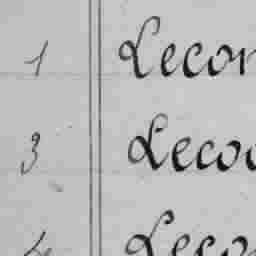 1 Lecon
3 Lecoo
4 Leco